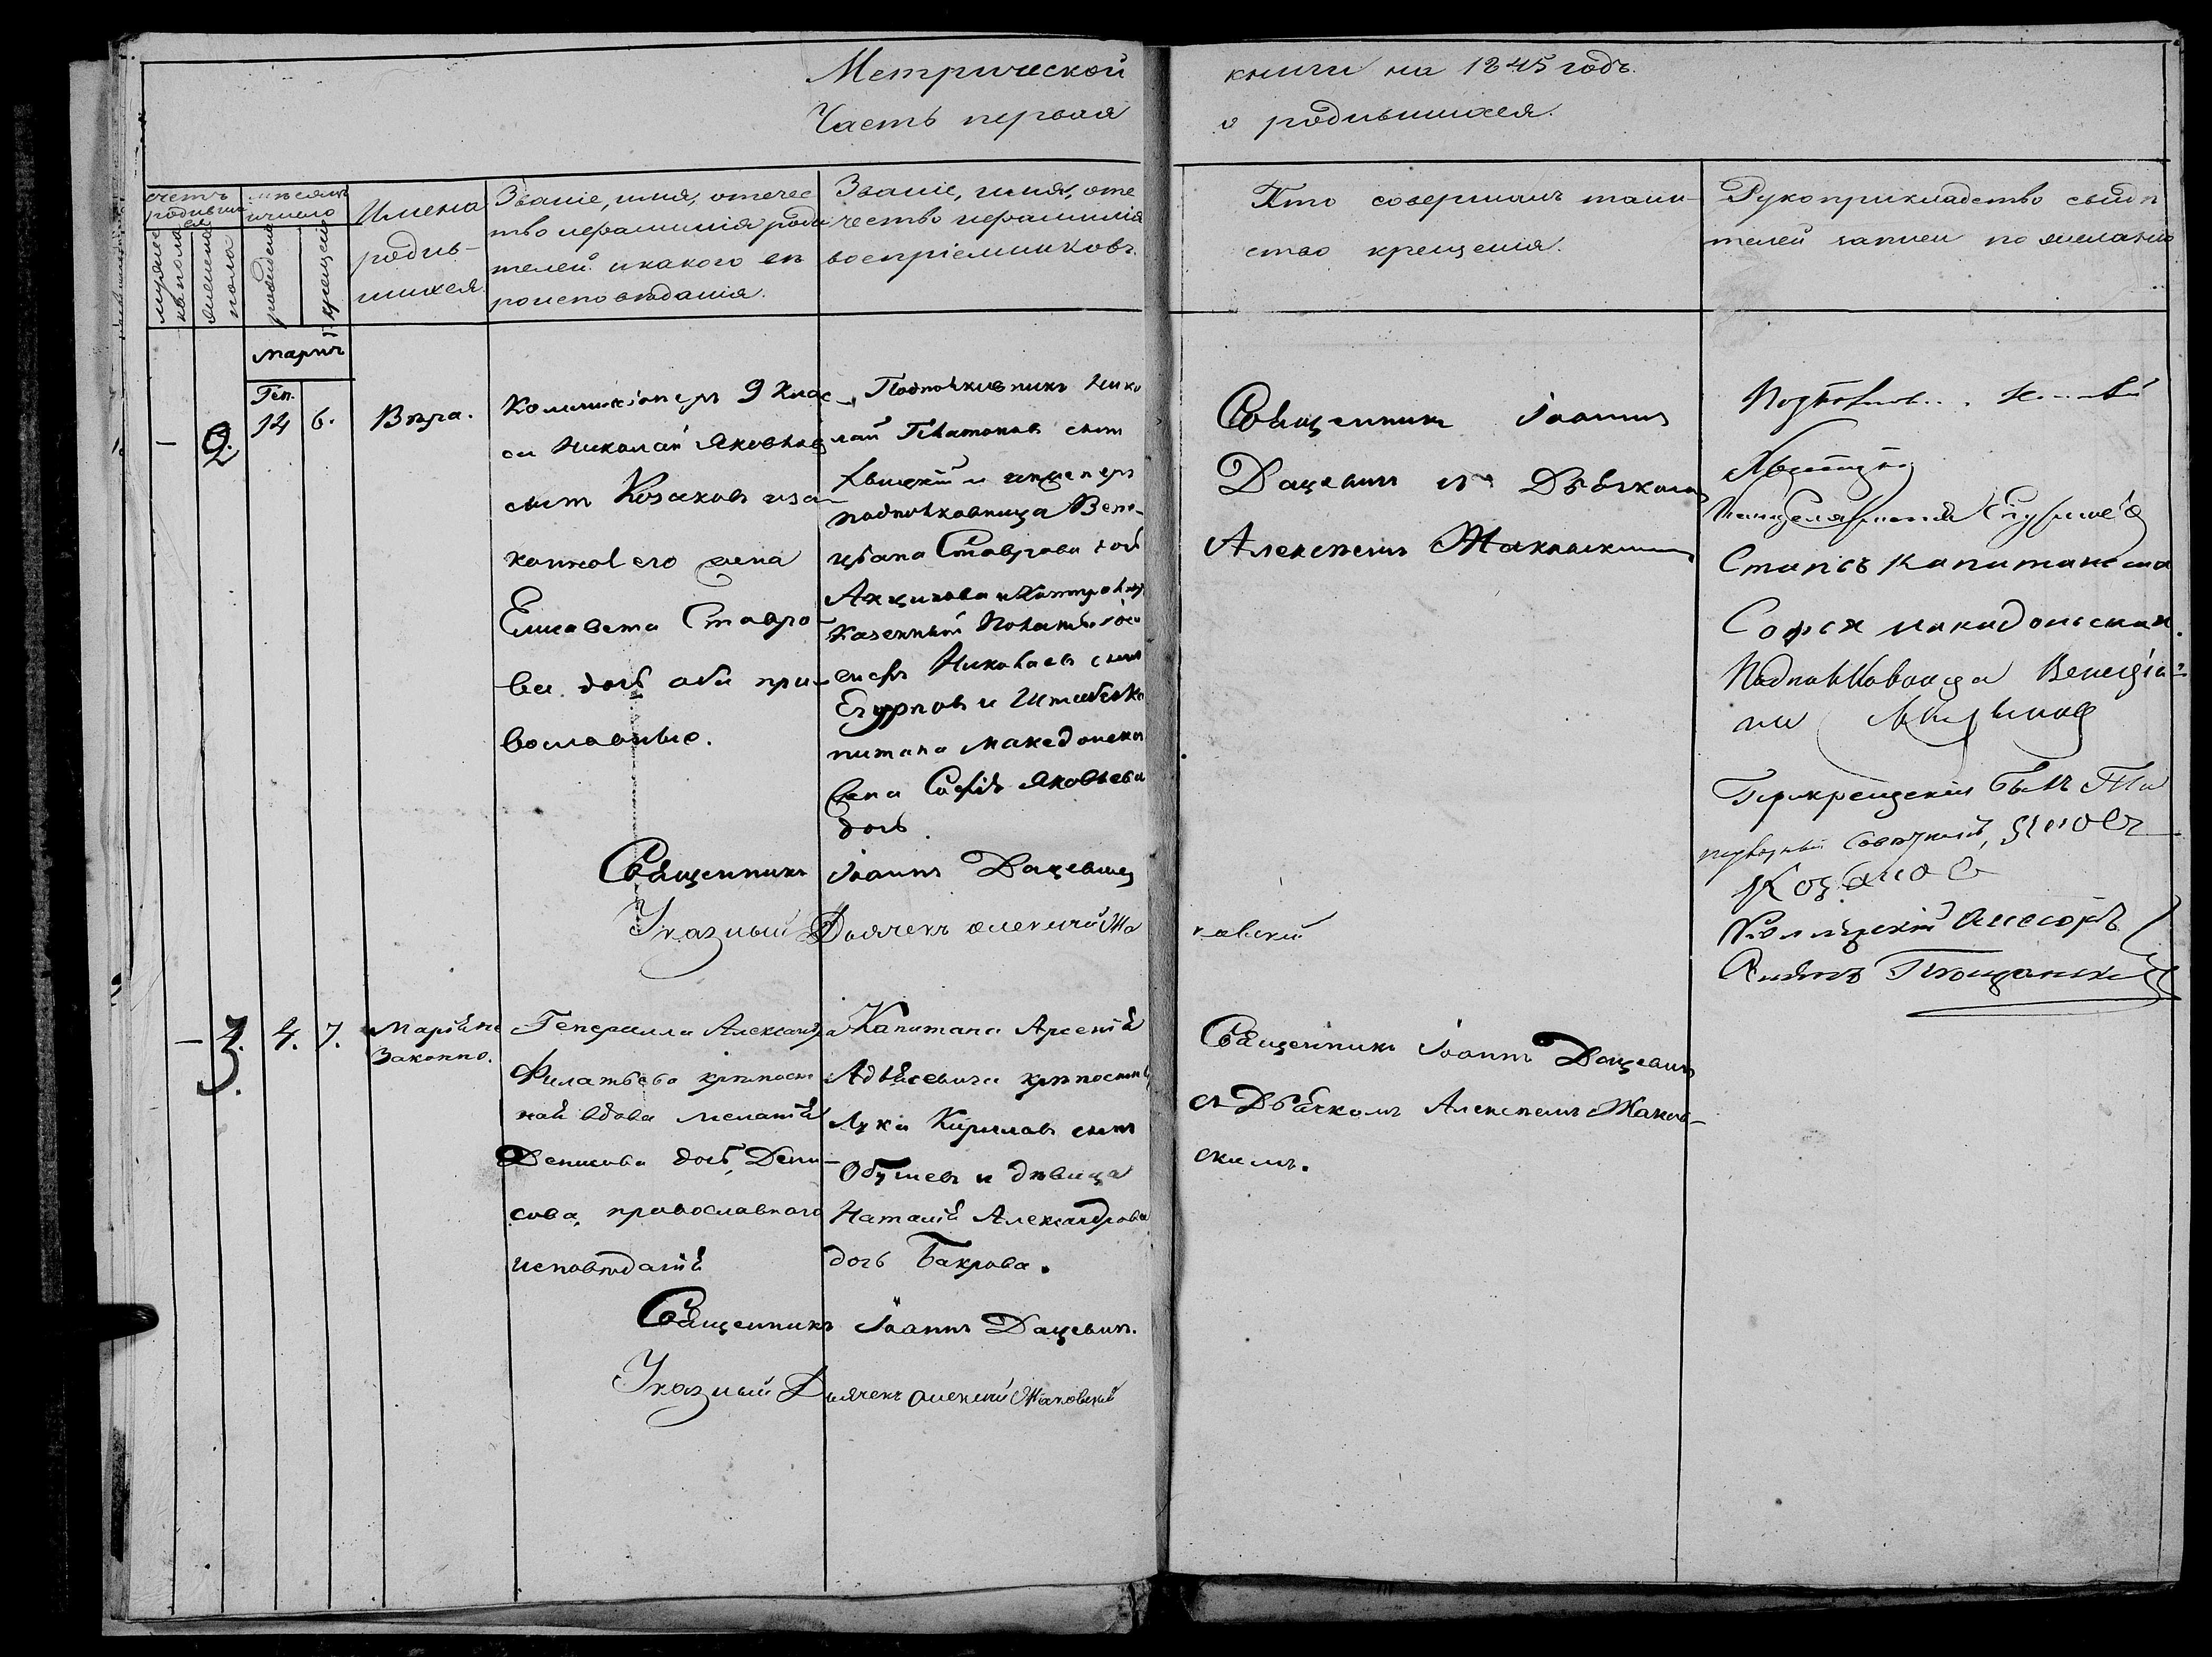 Метрической
Часть первая
книги на 1845 годъ.
о родившихся.
счетъ родивших
ся
мужес
ка пола
женска
пола
мѣсяцъ
и число
рожденія
крещенія
Имена
родив-
шихся.
Званіе, имя, отчес
тво и фамилія роди
телей и какого вѣ
роисповѣданія.
Званіе, имя, оте
чество и фамилія
воспріемниковъ.
Кто совершалъ таин-
ство крещенія.
Рукоприкладство свидѣ
телей записи по желанію
Мартъ
Ген.
– 2. 14 6. Вѣра.
Коммиссіонеръ 9 клас
са Николай Яковлевъ
сынъ Козаковъ и за
коннаѧ его жена
Елисавета Ставро
ва дочь оба пра
вославные.
Подполковникъ Нико
лай Платоновъ сынъ
инженеръ
подполковница Вене-
ціана Ставрова дочь
Казенный Полаты
Николаевъ сынъ
Егурновъ и Штабсъ Ка
питана Македонска
жена Софія Яковлева
дочь.
Священникъ Іоаннъ Дацевичъ
съ Дьячкомъ
Алексѣемъ Жаковскимъ
Канцеляріи
Стапсъ капитанеша
Софья Македонская.
Подполковница Венеція
на
При крещеніи былъ
совѣтникъ, Яковъ
Козаковъ
Коллежскій Ассесоръ
Священникъ Іоаннъ Дацевичъ
Указный Дьячекъ Алексѣй Жа
ковскій
– 3. 4. 7. Марія не
Законно.
Генерала Александра
Филатьева крѣпост
ная вдова Меланія
Денисова дочь, Дени-
сова, православнаго
исповѣданія
Капитана Арсенія
Авдѣевича крѣпостный
Лука Кириловъ сынъ
и дѣвица
Наталія Александрова
дочь Бакрова.
Священникъ Іоаннъ Дацевичъ
съ Дьячкомъ Алексѣемъ Жаков-
скимъ.
Священникъ Іоаннъ Дацевичъ.
Указный Дьячекъ Алексѣй Жаковскій